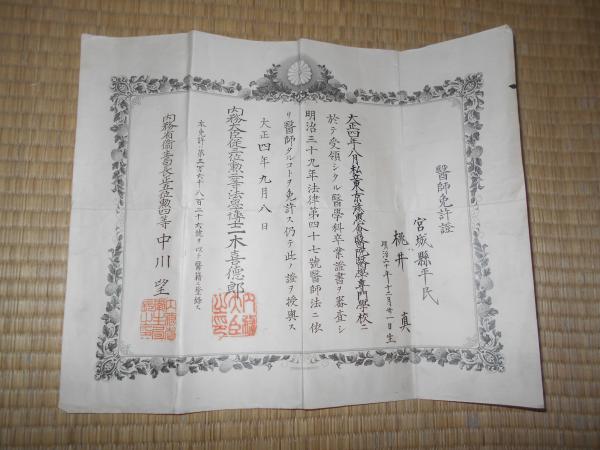 醫師免許證
宮城縣平民
桃井 真
明治二十年十二月廿一日生
大正四年八月私立東京慈惠會醫院醫學專門學校ニ
於テ受領シタル醫學科卒業證書ヲ審査シ
明治三十九年法律第四十七號醫師法ニ依
リ醫師タルコトヲ免許ス仍テ此ノ證ヲ授與ス
大正四年九月八日
內務大臣從三位勳一等法學博士一木喜德郎
內務大臣之印
本免許ノ第三百六十八百二十六號ヲ以テ醫籍ニ登錄ス
內務省衞生局長正五位勳四等中川 望